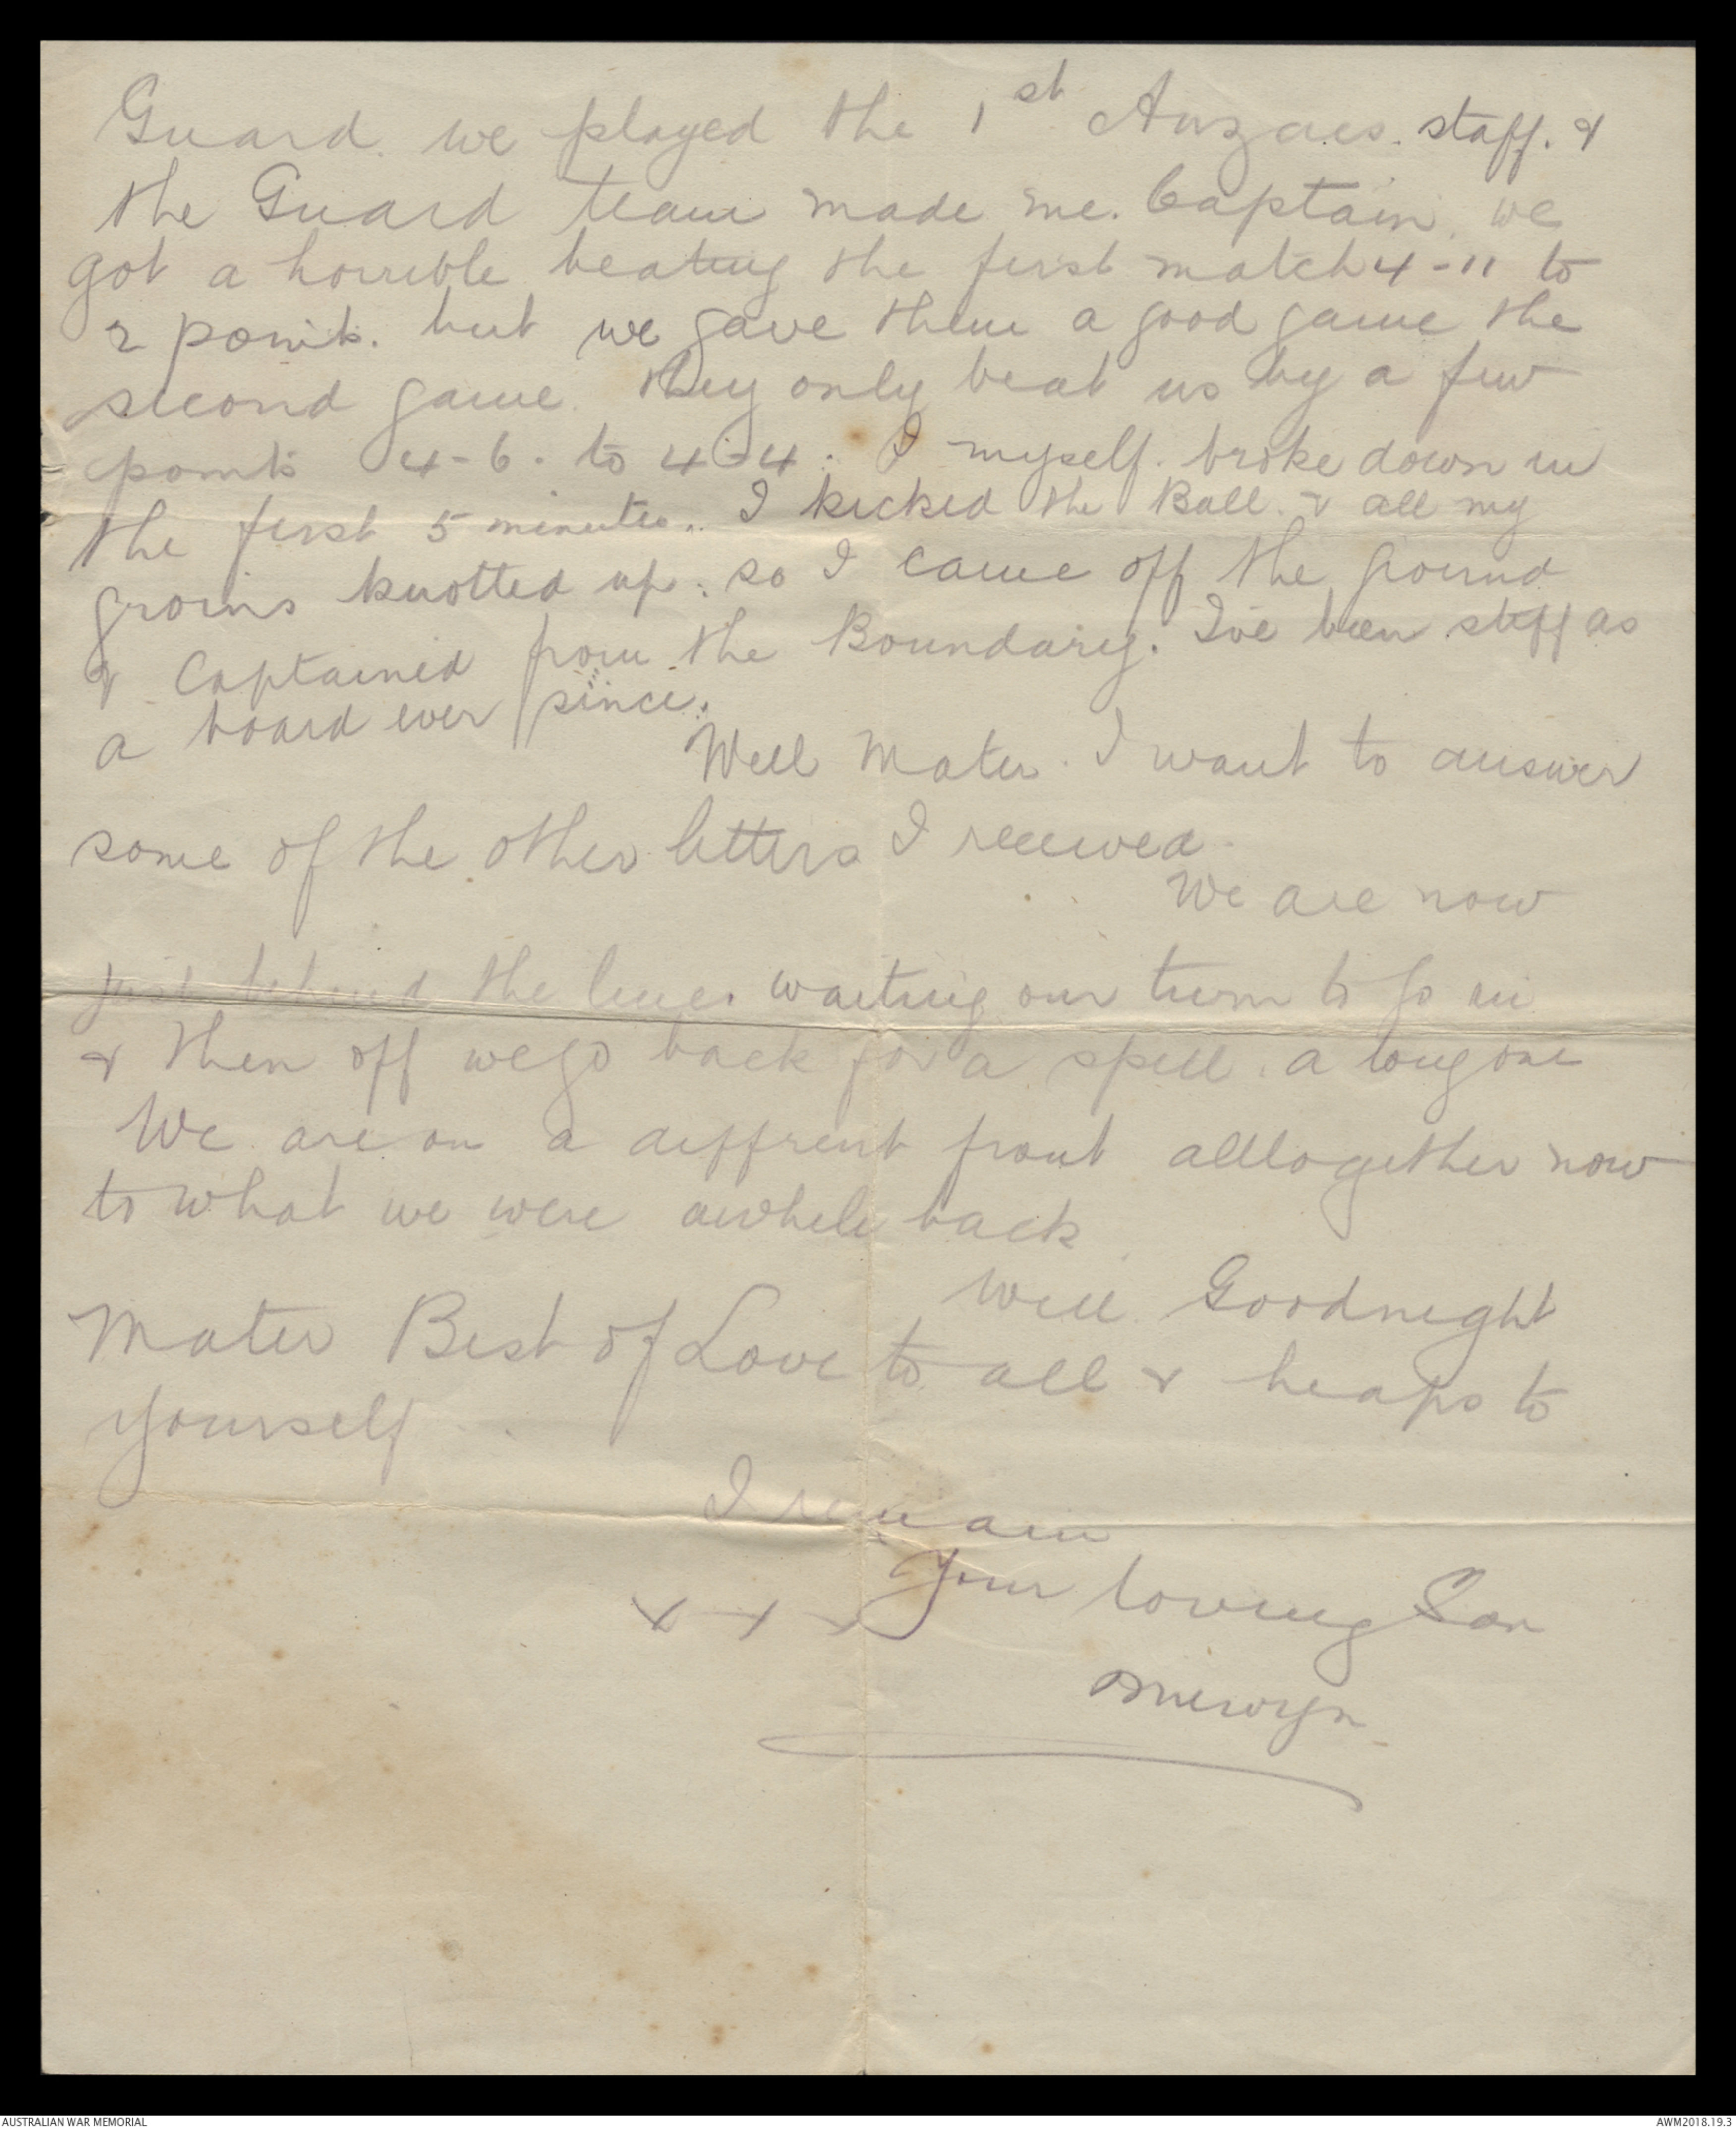 Guard. we played the 1st Anzacs. staff. &
the Guard team made me. Captain, we
got a horrible beating the first match 4-11 to
2 points. but we gave them a good game the
second game. they only beat us by a few
points 4-6. to 4-4. I myself. broke down in
the first 5 minutes.. I kicked the Ball. & all my
groins knotted up. so I came off the ground
& Captained from the Boundary. I've been stiff as
a board ever since.
Well Mater. I want to answer
some of the other letters I received.
We are now
just behind the lines. waiting our turn to go in
& then off we go back for a spell. a long one
We are on a diffrent front alltogether now
to what we were awhile back.
Well. Goodnight
Mater Best of Love to all & heaps to
yourself.
I remain
Your loving Son
x x x
Merwyn
AUSTRALIAN WAR MEMORIAL
AWM2018.19.3